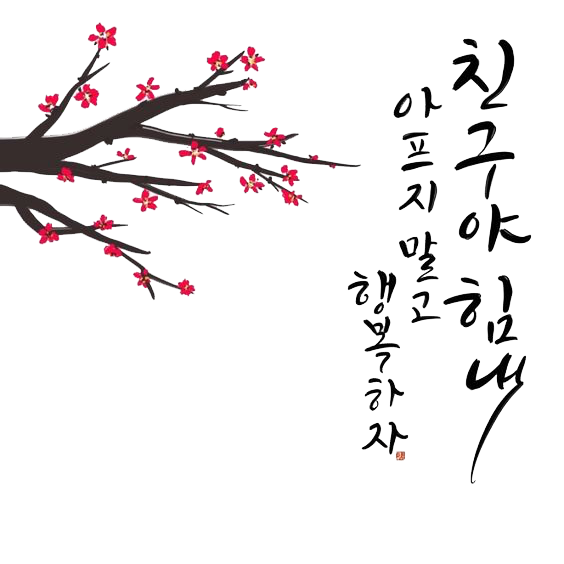 친구야 힘내
아프지 말고
행복하자